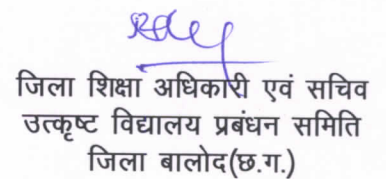 जिला शिक्षा अधिकारी एवं सचिव
उत्कृष्ट विद्यालय प्रबंधन समिति
जिला बालोद(छ.ग.)